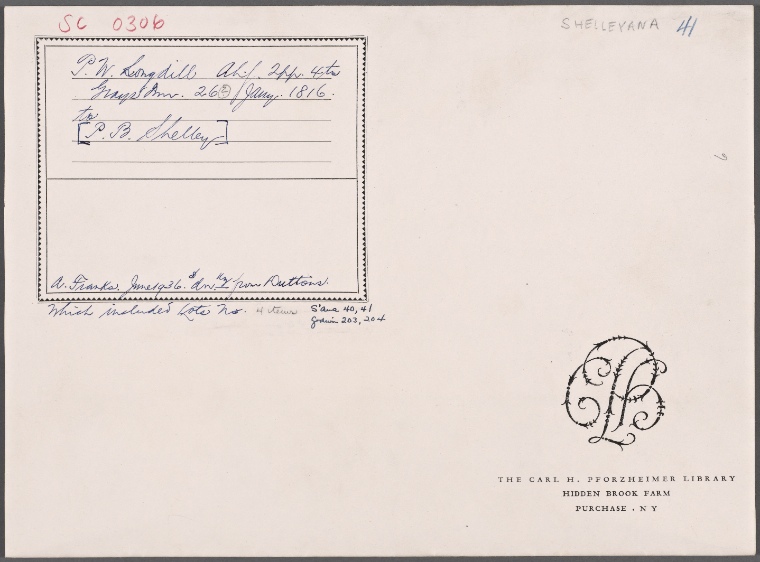 SC 0306
SHELLEYANA 41
P. W. Longdill ALS. 2pp. 4to
Grays Inn. 26 Jany. 1816.
to
[P. B. Shelley]
A. Franks. June 1936. from Duttons.
Which included Lots No. 4 items S'ana 40, 41
Godwin 203, 204
THE CARL H. PFORZHEIMER LIBRARY
HIDDEN BROOK FARM
PURCHASE . NY